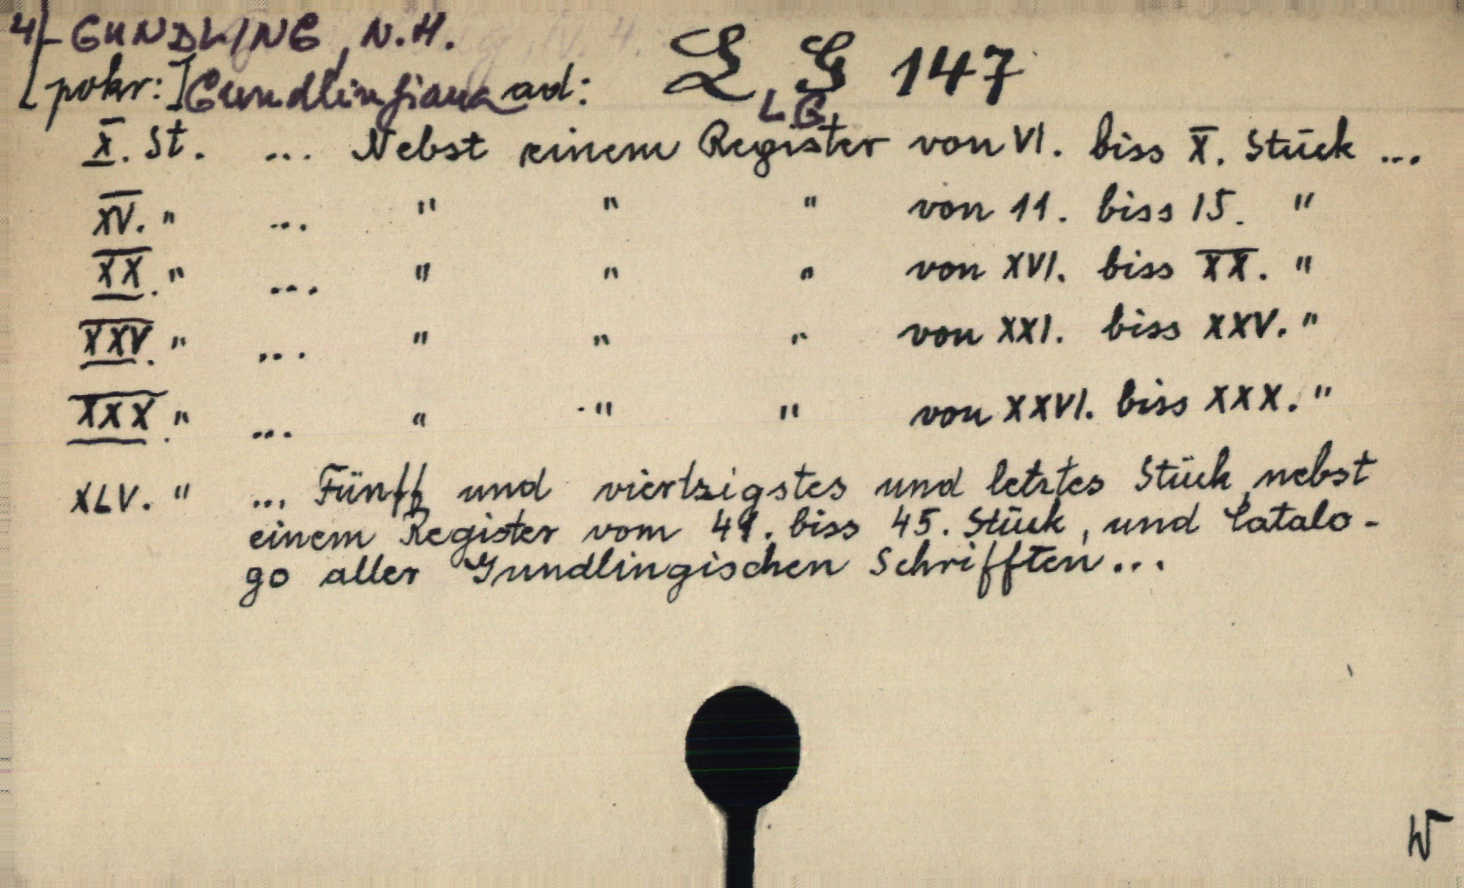 4/- GUNDLING, N.H.
[pokr:] Gundlingiana ad: L G 147
L G
X. St. ... Nebst einem Register von VI. biss X. Stück ...
XV. " ... " " " von 11. biss 15. "
XX. " ... " " " von XVI. biss XX. "
XXV. " ... " " " von XXI. biss XXV. "
XXX. " ... " " " von XXVI. biss XXX. "
XLV. " ... Fünff und viertzigstes und letztes Stück, nebst
einem Register vom 41. biss 45. Stück, und Catalo-
go aller Gundlingischen Schrifften...
W